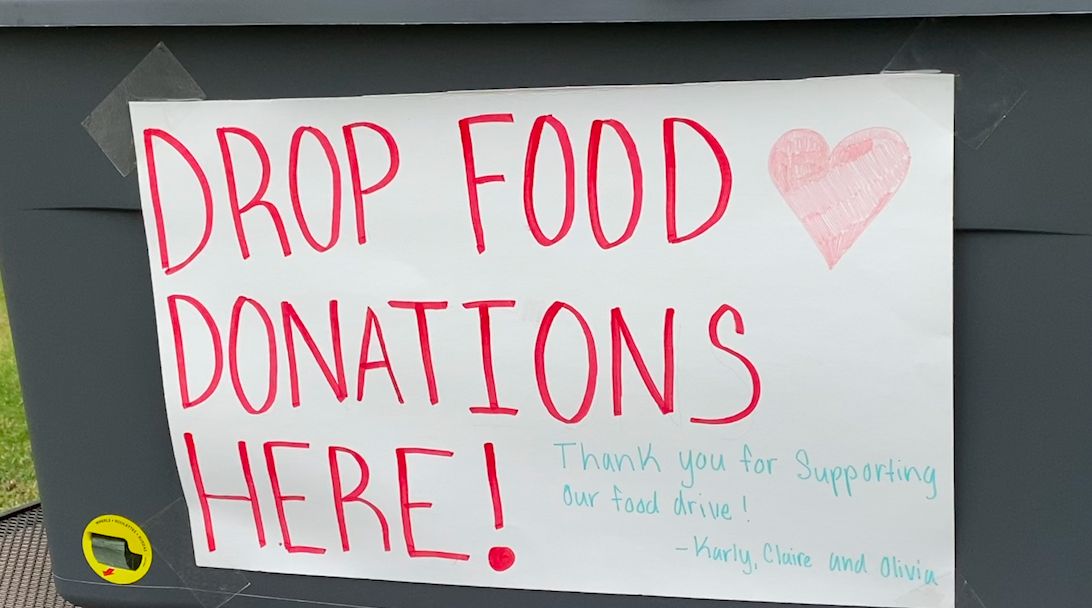 DROP FOOD
DONATIONS
HERE!
Thank you for Supporting
Our food drive!
-Karly, Claire and Olivia